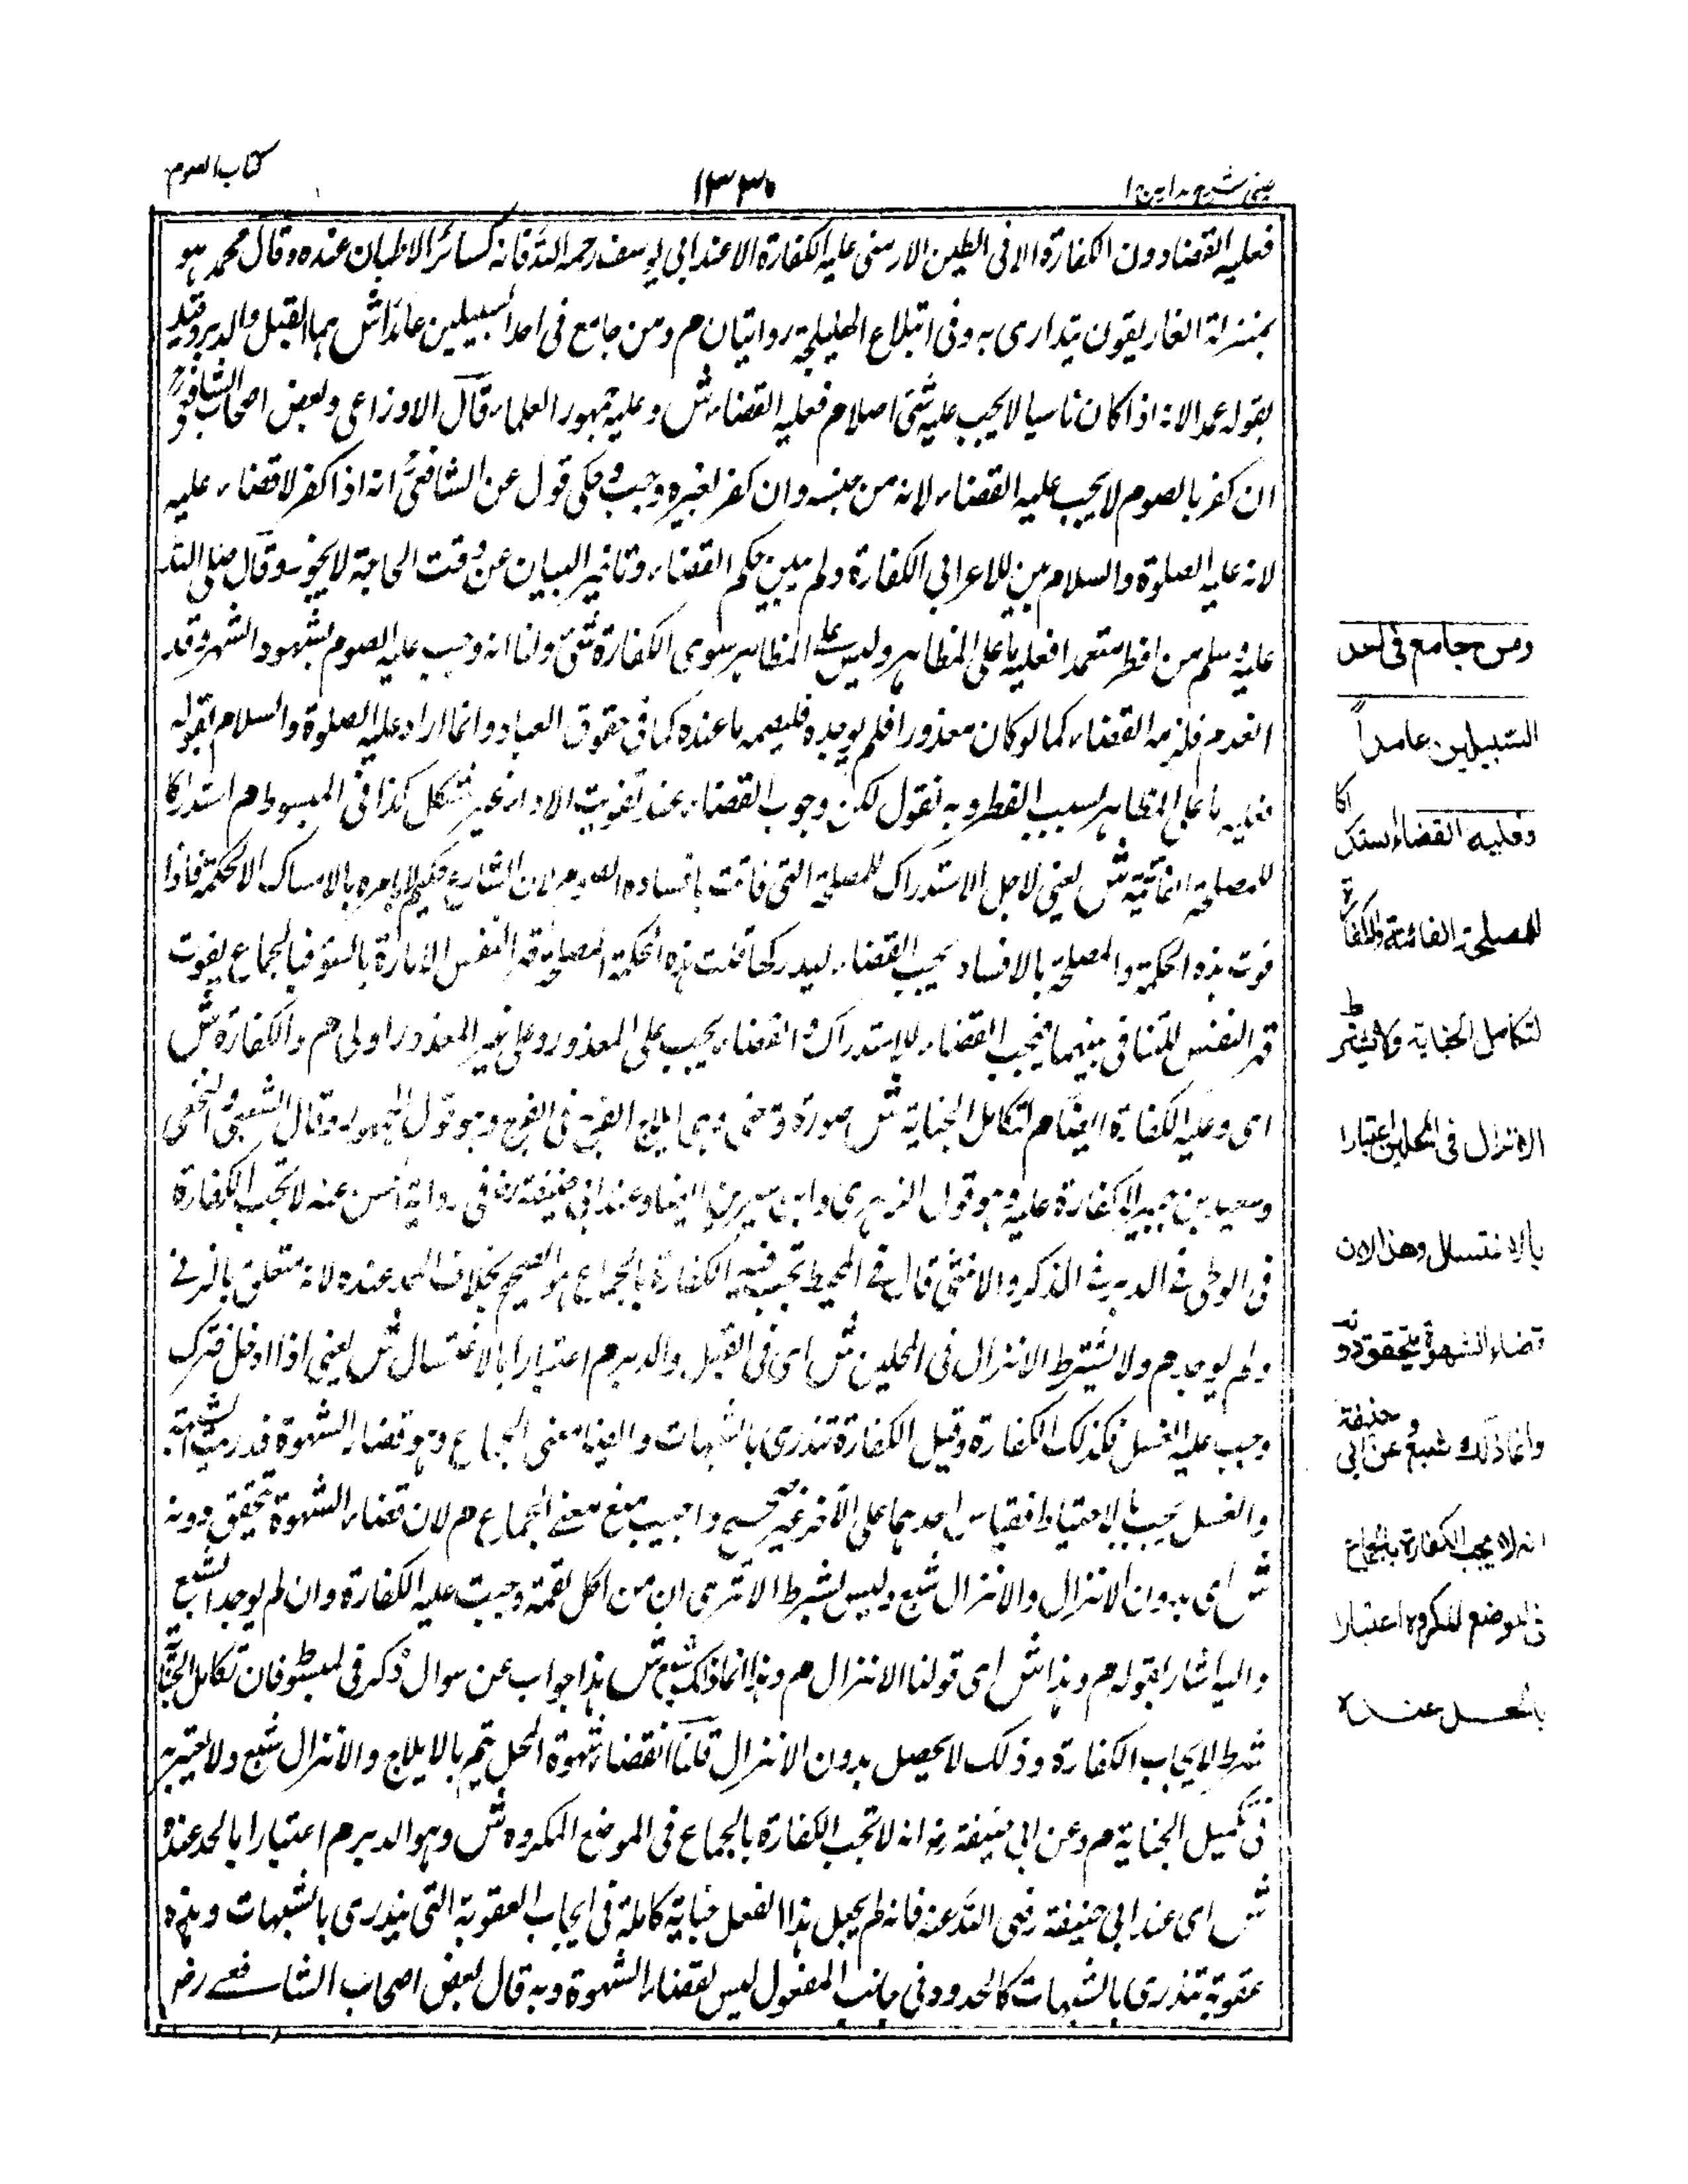 كتاب الصوم
١٣٣٠
عينى شرح هداية ج ١
فعليه القضاء دون الكفارة الا فى الطين الارمنى عليه الكفارة الا عند ابى يوسف رحمه الله فانه كسائر الاطيان عنده وقال محمد هو
بمنزلة الغاريقون يتداوى به وفى ابتلاع الهليلجة روايتان م ومن جامع فى احد السبيلين عامدا ش هما القبل والدبر وقيد
بقوله عمدا لانه اذا كان ناسيا لا يجب عليه شئ اصلا م فعليه القضاء ش وعليه جمهور العلماء وقال الاوزاعى وبعض اصحاب الشافعى
ان كفر بالصوم لا يجب عليه القضاء لانه من جنسه وان كفر بغيره وجب وحكى قول عن الشافعى انه اذا كفر لا قضاء عليه
لانه عليه الصلوة والسلام بين للاعرابى الكفارة ولم يبين حكم القضاء وتاخير البيان عن وقت الحاجة لا يجوز وقال صلى الله
عليه وسلم من افطر متعمدا فعليه ما على المظاهر وليس على المظاهر سوى الكفارة شئ ولنا انه وجب عليه الصوم بشهود الشهر وقد
انعدم فلزمه القضاء كما لو كان معذورا فلم يوجده فليصمه ما عنده كما فى حقوق العباد وانما اراد عليه الصلوة والسلام بقوله
فعليه ما على المظاهر بسبب الفطر وبه نقول لكن وجوب القضاء عند تفويت الاداء غير مشكل كذا فى المبسوط م استدراكا
للمصلحة الفائتة ش يعنى لاجل الاستدراك للمصلحة التى فاتت بافساده الصوم لان الشارع حكيم لا يامره بالامساك الا لحكمة فاذا
فوت هذه الحكمة والمصلحة بالافساد يجب القضاء ليدركها قلت هذه الحكمة المصلحة قهر النفس الامارة بالسوء فبالجماع يفوت
قهر النفس للتنافى بينهما فيجب القضاء للاستدراك والقضاء يجب على المعذور وعلى غير المعذور اولى م والكفارة ش
اى وعليه الكفارة ايضا م لتكامل الجناية ش صورة ومعنى وهى ايلاج الفرج فى الفرج وهو قول الجمهور وقال الشعبى والنخعى
وسعيد بن جبير لا كفارة عليه وهو قول الزهرى وابن سيرين ايضا وعند ابى حنيفة رض فى رواية الحسن عنه لا تجب الكفارة
فى الوطى فى الدبر فى الذكر والانثى قال فى المحيط تجب فيه الكفارة بالجماع هو الصحيح بخلاف الحد عنده لانه متعلق بالزنى
ولم يوجد م ولا يشترط الانزال فى المحلين ش اى فى القبل والدبر م اعتبارا بالاغتسال ش يعنى اذا ادخل فترك
وجب عليه الغسل فكذلك الكفارة وقيل الكفارة تندرى بالشبهات وايضا معنى الجماع وهو قضاء الشهوة
والغسل يجب بالاحتياط فقياس احدهما على الآخر غير صحيح واجيب بمنع معنى الجماع م لان قضاء الشهوة يتحقق دونه
ش اى بدون الانزال والانزال شبع وليس بشرط الا ترى ان من اكل لقمة وجبت عليه الكفارة وان لم يوجد الشبع
واليه اشار بقوله م وهذا ش اى قولنا الانزال م وانما ذلك شبع ش هذا جواب عن سوال ذكر فى المبسوط فان تكامل الجناية
شرط لايجاب الكفارة وذلك لا يحصل بدون الانزال قلنا انقضاء شهوة المحل يتم بالايلاج والانزال شبع ولا يعتبر به
فى تكميل الجناية م وعن ابى حنيفة رض انه لا تجب الكفارة بالجماع فى الموضع المكروه ش وهو الدبر م اعتبارا بالحد عنده
ش اى عند ابى حنيفة رضى الله عنه فانه لم يجعل هذا الفعل جناية كاملة فى ايجاب العقوبة التى تندرى بالشبهات وهذه
عقوبة تندرى بالشبهات كالحدود وفى جانب المفعول ليس لقضاء الشهوة وبه قال بعض اصحاب الشافعے رض
ومن جامع فى احد
السبيلين عامداً
فعليه القضاء استدراكا
للمصلحة الفائتة والكفارة
لتكامل الجناية ولا يشترط
الانزال فى المحلين اعتبارا
بالاغتسال وهذا لان
قضاء الشهوة يتحقق دونه
وانما ذلك شبع وعن ابى حنيفة
انه لا يجب الكفارة بالجماع
فى الموضع المكروه اعتبارا
بالحد عنده